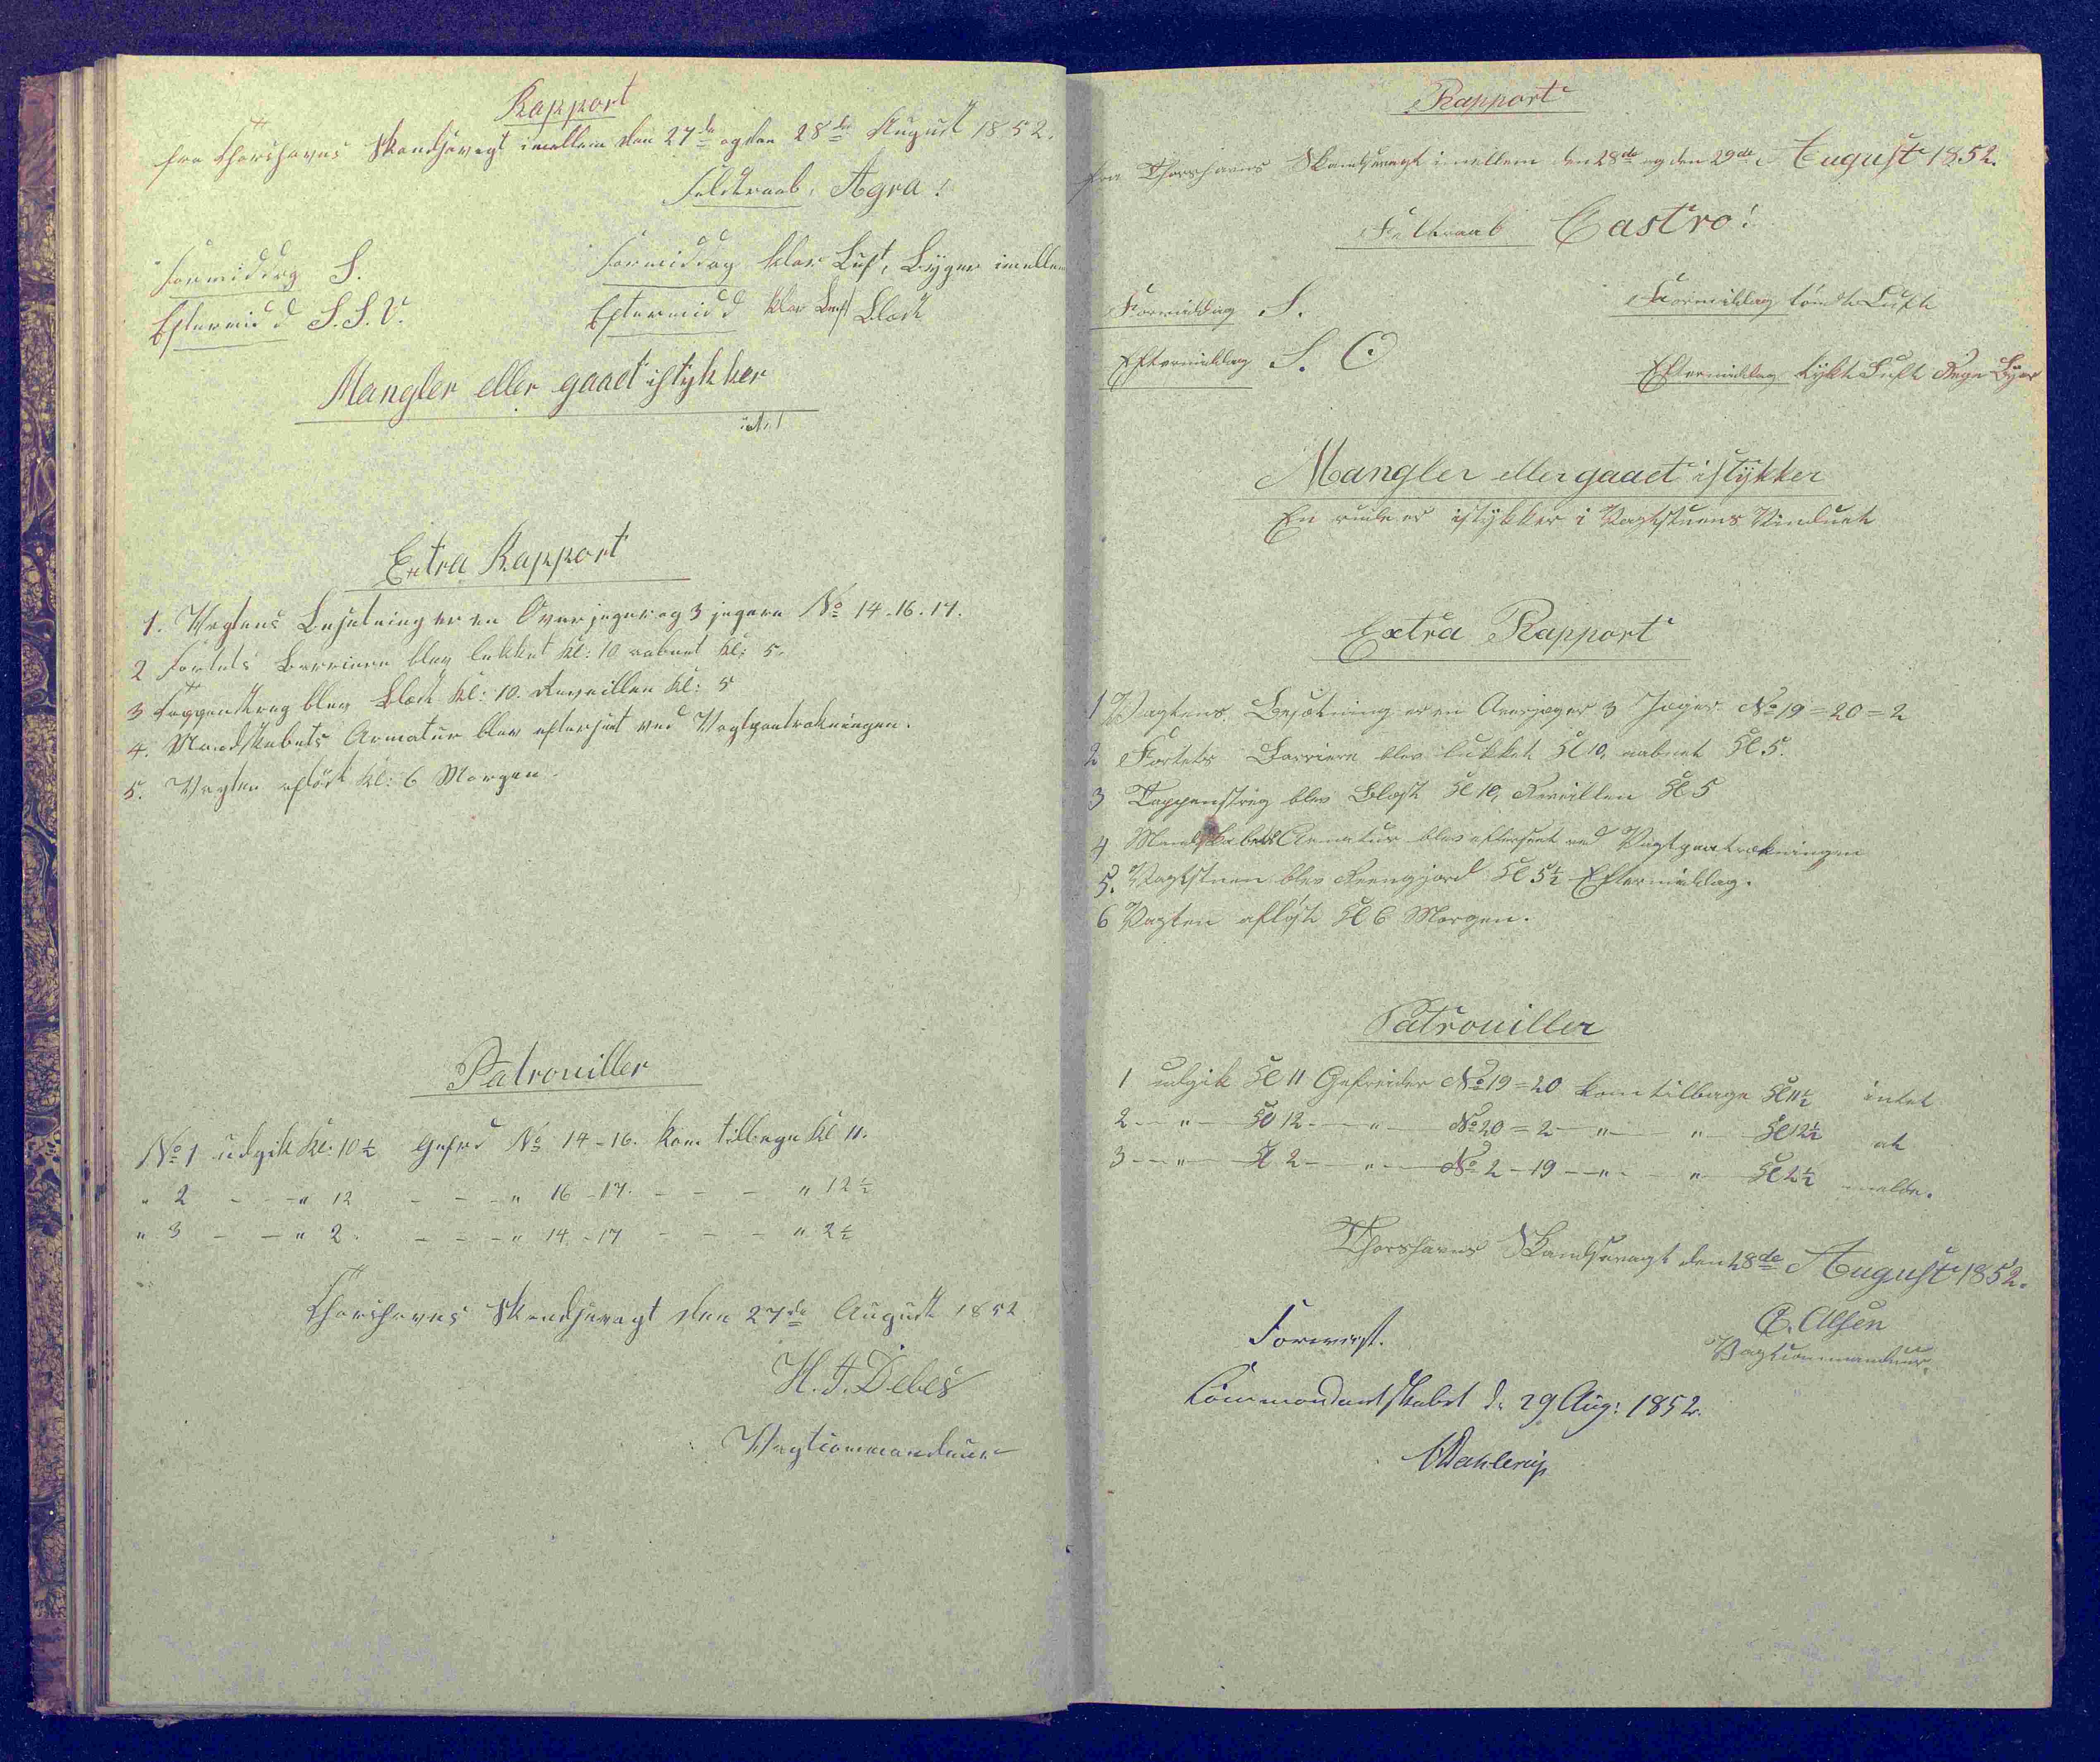 Rapport
fra Thorshavns Skandsevagt imellem den 27de og den 28de August 1852.
Feldtraab, Agra!
Formiddag S.
Formiddag klar Luft, Byger imellem
Eftermidd S.S.V.
Eftermidd klar Luft Blæst
Mangler eller gaaet istykker
intet
Extra Rapport
1. Vagtens Besætning er en Overjæger og 3 jægere No 14-16-17.
2 Fortets Barriere blev lukket Kl: 10 aabnet Kl: 5.
3 Tappenstreg blev Blæst Kl: 10. Reveillen Kl: 5
4. Mandskabets Armatur blev efterseet ved Vagtparetrækningen.
5. Vagten afløst Kl: 6 Morgen.
Patrouiller
No 1 udgik Kl: 10½ Gefrd No 14-16. kom tilbage Kl 11.
" 2 - - " 12 - - - " 16-17. - - - " 12½
" 3 - - " 2. - - - " 14-17 - - - " 2½
Thorshavns Skandsevagt den 27de August 1852
H. J. Debes
Vagtcommandeur
Rapport
fra Thorshavns Skandsevagt imellem den 28de og den 29de August 1852.
Feltraab Castro!
Formiddag S.
Formiddag Luft
Eftermiddag S. O
Eftermiddag tykt Luft Regn Byer
Mangler eller gaaet istykker
En rude er istykker i Vagtstuens Vinduet
Extra Rapport
1 Vagtens Besætning er en Overjæger 3 Jæger No 19=20=2
2 Fortets Barriere blev lukket Kl 10, aabnet Kl 5.
3 Tappenstreg blev Blæst Kl 10, Reveillen Kl 5
4 Mandskabets Armatur blev efterseet ved Vagtparetrækningen
5. Vagtstuen blev Reengjord Kl 5½ Eftermiddag.
6 Vagten afløst Kl 6 Morgen.
Patrouiller
1 udgik Kl 11 Gefreider No 19=20 kom tilbage Kl 11½ intet
2 - " - Kl 12 - " - No 20=2 - " - " - Kl 12½ at
3 - " - Kl 2 - " - No 2-19 - " - " - Kl 2½ melde.
Thorshavns Skandsevagt den 28de August 1852.
Olsen
Vagtcommandeur.
Forevist.
Commandantskabet d. 29 Aug: 1852.
Dahlerup